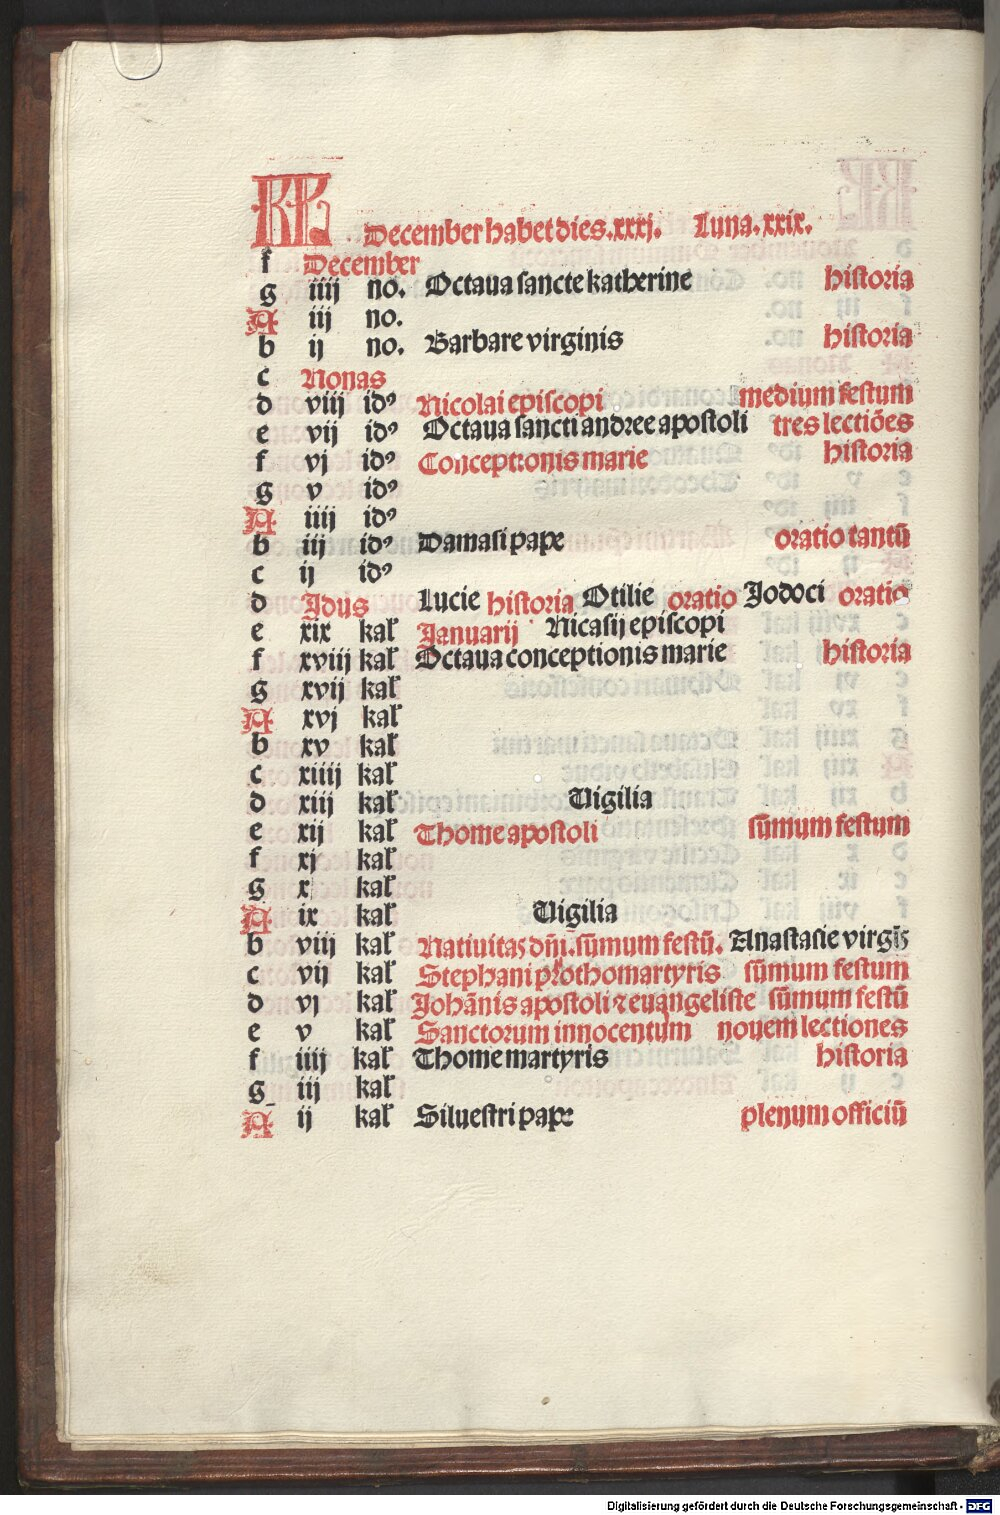 KL December habet dies. xxxj. Luna. xxix.
f December
g iiij no. Octaua sancte katherine historia
A iij no.
b ij no. Barbare virginis historia
c Nonas
d viij idꝰ Nicolai episcopi medium festum
e vij idꝰ Octaua sancti andree apostoli tres lectiões
f vj idꝰ Conceptionis marie historia
g v idꝰ
A iiij idꝰ
b iij idꝰ Damasi pape oratio tantū
c ij idꝰ
d Idus Lucie historia Otilie oratio Jodoci oratio
e xix kal' Januarij Nicasij episcopi
f xviij kal' Octaua conceptionis marie historia
g xvij kal'
A xvj kal'
b xv kal'
c xiiij kal'
d xiij kal' Vigilia
e xij kal' Thome apostoli sūmum festum
f xj kal'
g x kal'
A ix kal' Vigilia
b viij kal' Natiuitas dñi. sūmum festū. Anastasie virgīs
c vij kal' Stephani prothomartyris sūmum festum
d vj kal' Johānis apostoli ⁊ euangeliste sūmum festū
e v kal' Sanctorum innocentum nouem lectiones
f iiij kal' Thome martyris historia
g iij kal'
A ij kal' Siluestri pape plenum officiū
Digitalisierung gefördert durch die Deutsche Forschungsgemeinschaft - DFG